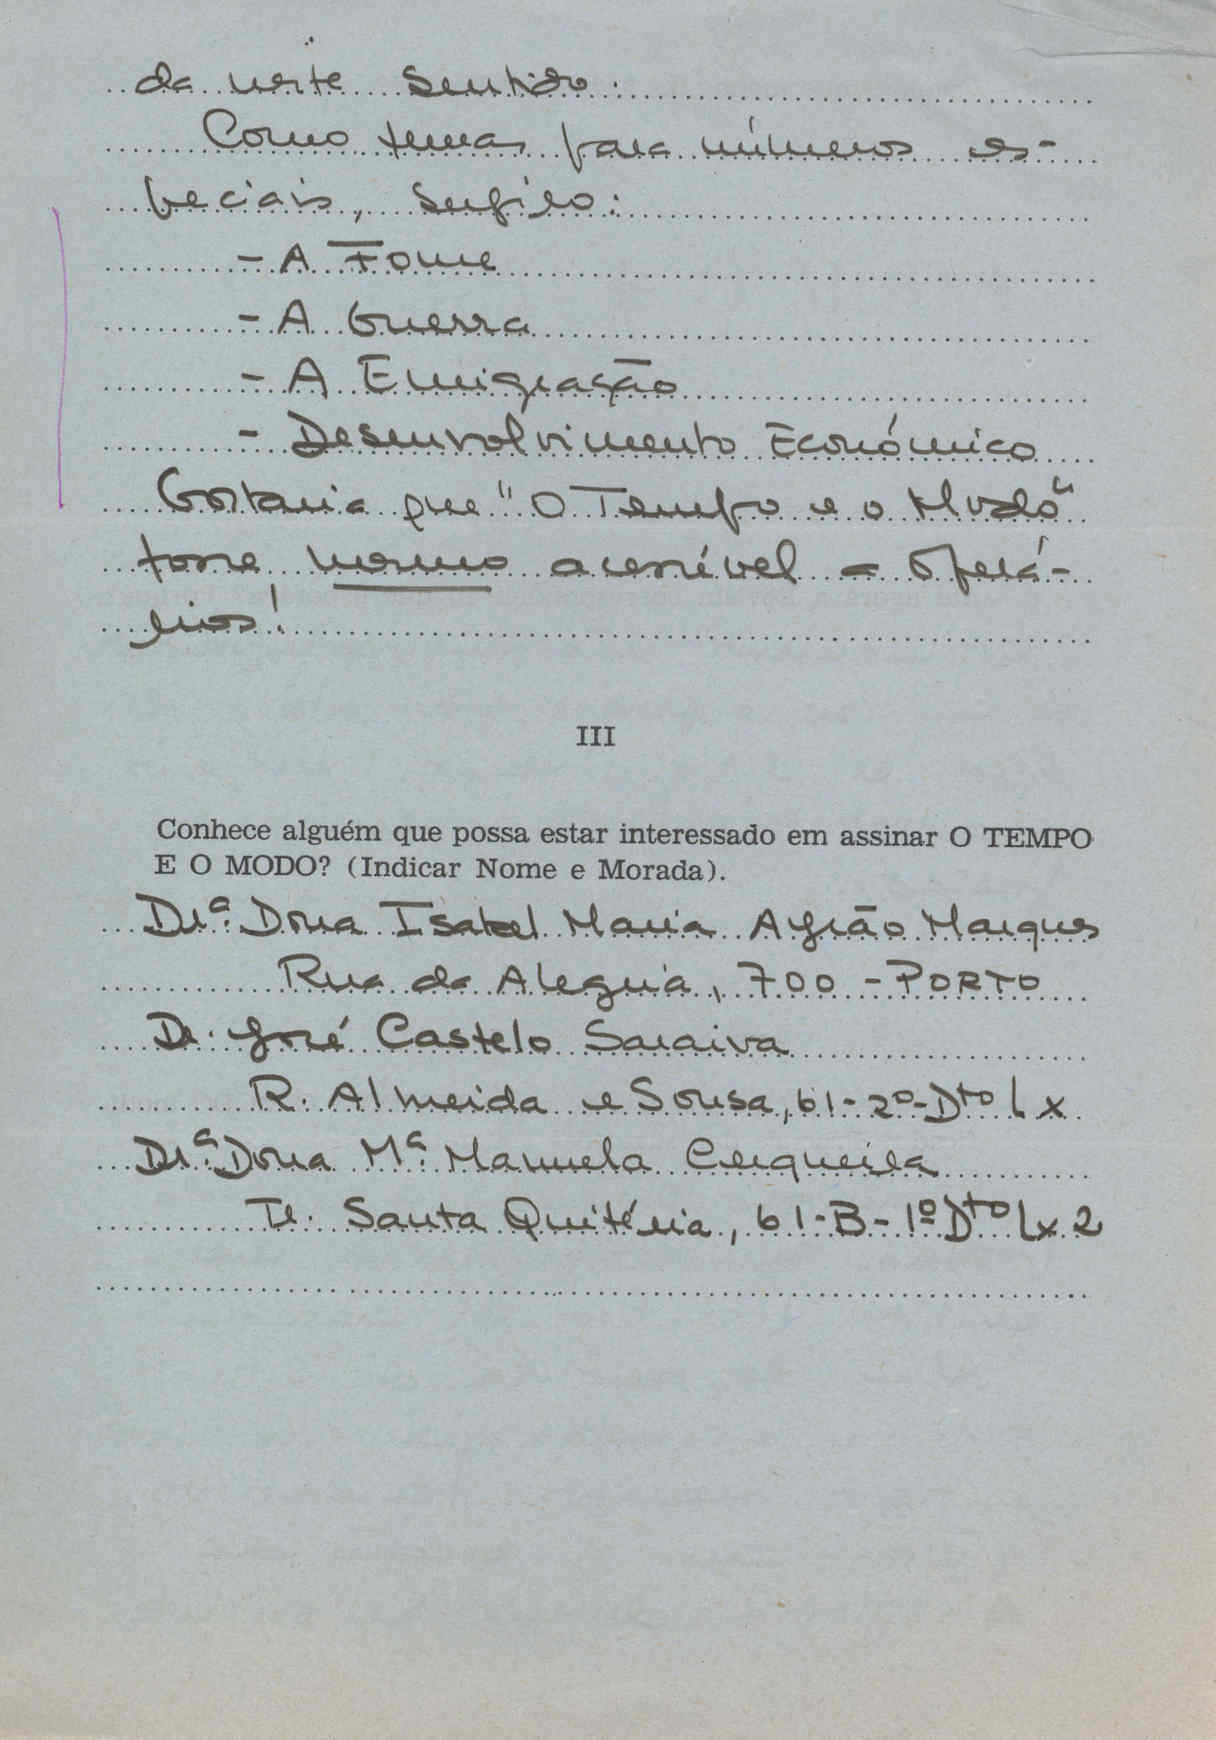 da neste sentido.
Como temas para números es-
peciais, sugiro:
- A Fome
- A Guerra
- A Emigração
- Desenvolvimento Económico
Gostaria que "O Tempo e o Modo"
fosse mesmo acessível a operá-
rios!
III
Conhece alguém que possa estar interessado em assinar O TEMPO
E O MODO? (Indicar Nome e Morada).
Drª. Dona Isabel Maria Agrão Marques
Rua da Alegria, 700 - PORTO
Dr. José Castelo Saraiva
R. Almeida e Sousa, 61-2º-Dto Lx
Drª. Dona Mª. Manuela Cerqueira
Tr. Santa Quitéria, 61-B-1º Dto Lx 2